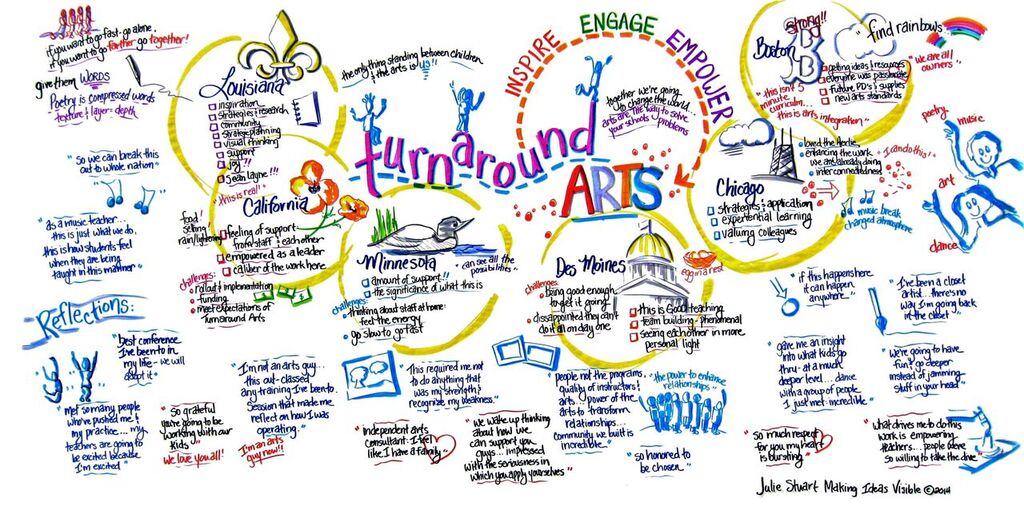 if you want to go fast - go alone,
if you want to go farther go together!
give them WORDS
Poetry is compressed words
texture & layer - depth
"so we can break this
out to whole nation"
"as a music teacher...
this is just what we do,
this is how students feel
when they are being
taught in this manner"
Louisiana
inspiration
strategies & research
community
strategic planning
visual thinking
support
joy!!!
Sean Layne!!!
"this is real!"
California
feeling of support
from staff & each other
empowered as a leader
caliber of the work here
food!
setting
rain/lightening
challenges:
rollout & implementation
funding
meet expectations of
Turnaround Arts
the only thing standing between children
& the arts is us!!
turnaround
ARTS
INSPIRE ENGAGE EMPOWER
together we're going
to change the world.
arts are the key to solve
your school's problems
Minnesota
"can see all the
possibilities"
amount of support!!
the significance of what this is
challenges:
thinking about staff at home
feel the energy
go slow to go fast
Des Moines
egg in a nest
challenges:
being good enough
to get it going
disappointed they can't
do it all on day one
this is Good teaching
team building - phenomenal
seeing each other in more
personal light
Boston
strong!!
B
getting ideas & resources
everyone was passionate
future PD's & supplies
new arts standards
"this isn't 5
minute
curriculum...
this is arts integration"
"find rainbows"
"we are all
owners"
Chicago
loved the Kerlie,
enhancing the work
we are already doing
interconnectedness
strategies & application
experiential learning
valuing colleagues
"I can do this!"
music break
changed atmosphere
poetry
music
art
dance
"if this happens here
it can happen
anywhere"
"I've been a closet
artist... there's no
way I'm going back
in the closet"
gave me an insight
into what kids go
thru - at a much
deeper level... dance
with a group of people
I just met - incredible"
"we're going to have
fun & go deeper
instead of jamming
stuff in your head"
so much respect
for you my heart
is bursting
"what drives me to do this
work is empowering
teachers... people done
so willing to take the dive
Reflections:
"best conference
I've been to in
my life - we will
adopt it"
"met so many people
who've pushed me &
my practice... my
teachers are going to
be excited because
I'm excited"
"so grateful
you're going to be
working with our
kids
we love you all!
I'm not an arts guy...
this out-classed
any training I've been to
Session that made me
reflect on how I was
operating
I'm an arts
guy now!!
"This required me not
to do anything that
was my strength &
recognize my weakness."
Independent arts
consultant. I feel
like I have a family"
we wake up thinking
about how we
can support you
guys... impressed
with the seriousness in
which you apply yourselves"
people not the programs,
quality of instructors &
power of the
arts to transform
relationships...
community we built is
incredible"
"the power to enhance
relationships"
"so honored to
be chosen"
Julie Stuart Making Ideas Visible ©2014